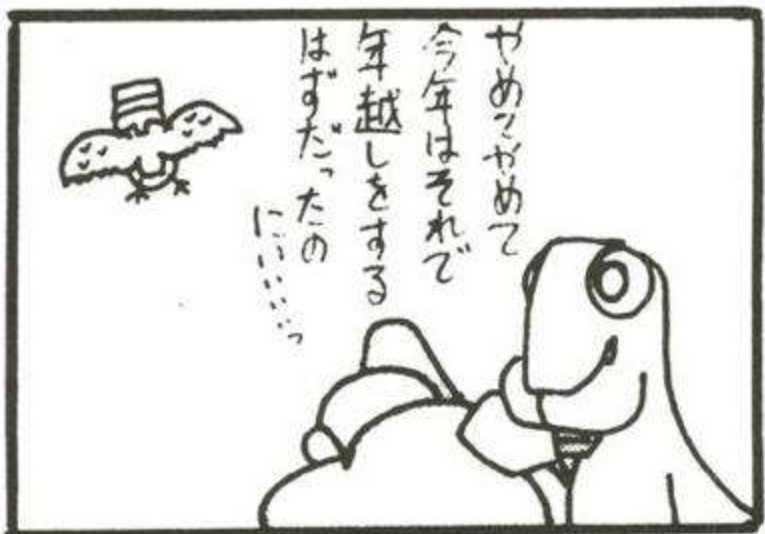 やめてやめて
今年はそれで
年越しをする
はずだったの
にぃぃぃぃっ